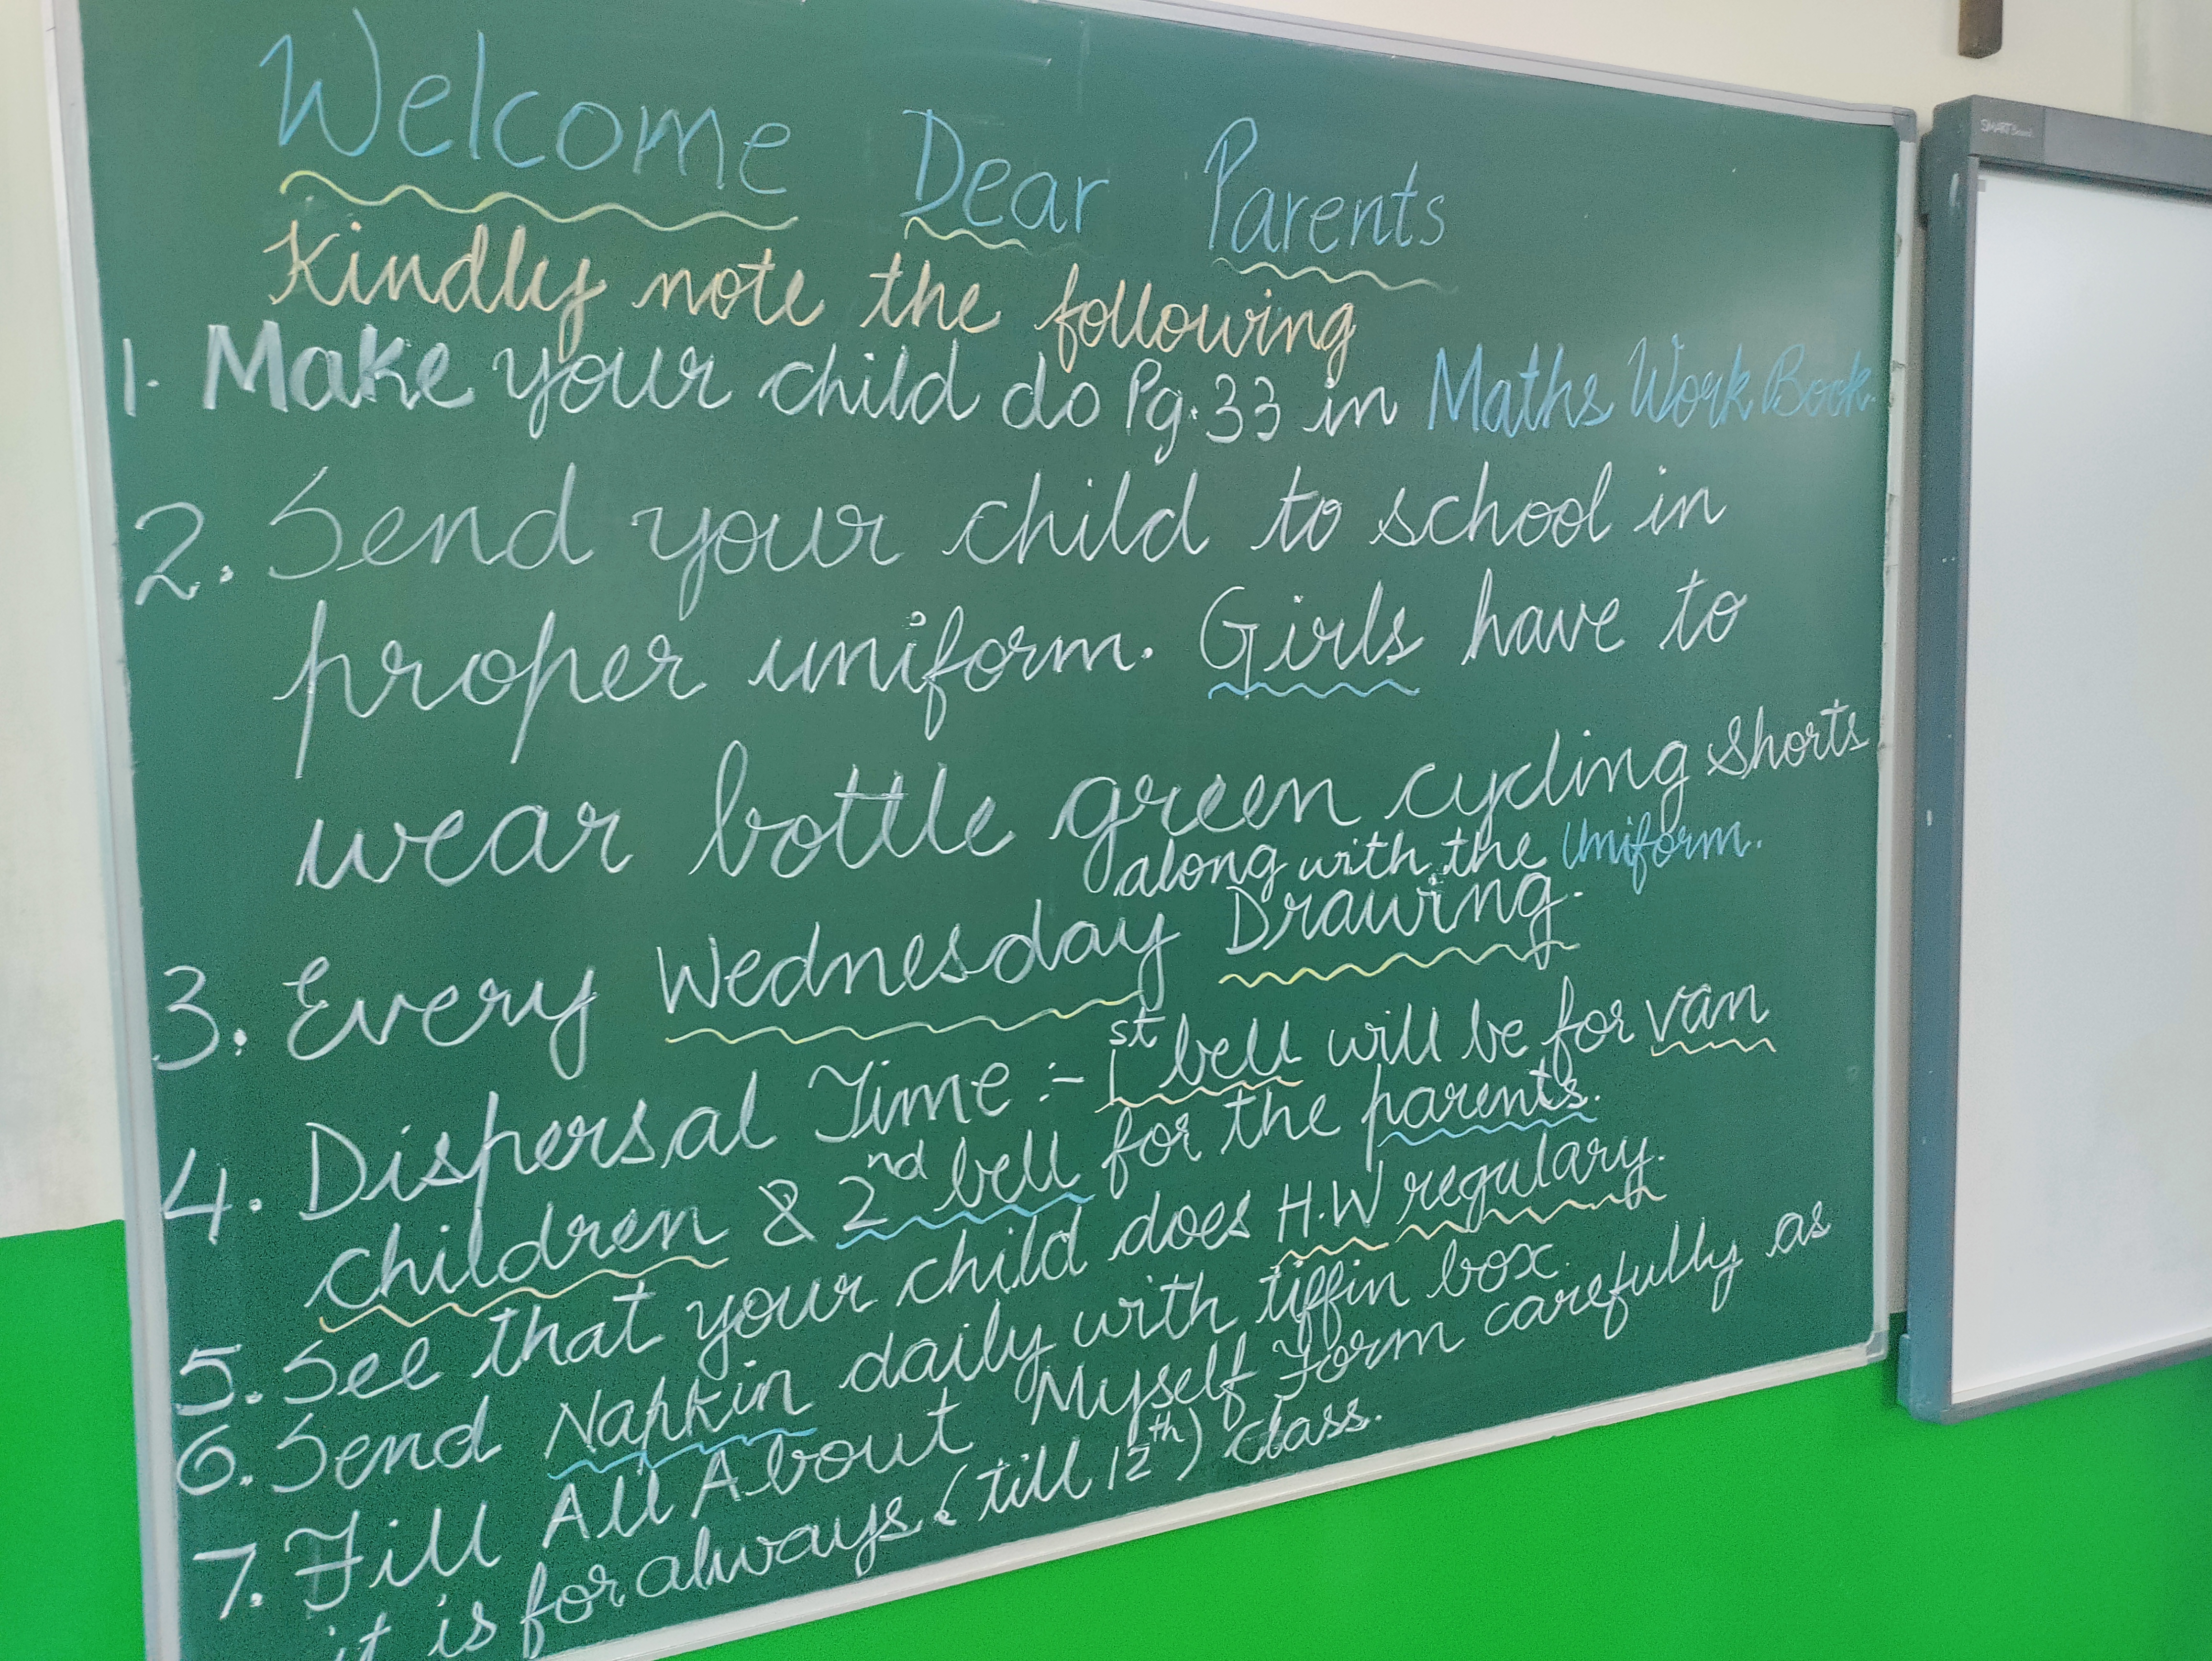 Welcome Dear Parents
Kindly note the following
1. Make your child do Pg. 33 in Maths Work Book.
2. Send your child to school in
proper uniform. Girls have to
wear bottle green cycling shorts
along with the Uniform.
3. Every Wednesday Drawing.
4. Dispersal Time :- 1st bell will be for van
children & 2nd bell for the parents.
5. See that your child does H.W regulary.
6. Send Napkin daily with tiffin box.
7. Fill All About Myself Form carefully as
it is for always (till 12th) class.
SMART Board